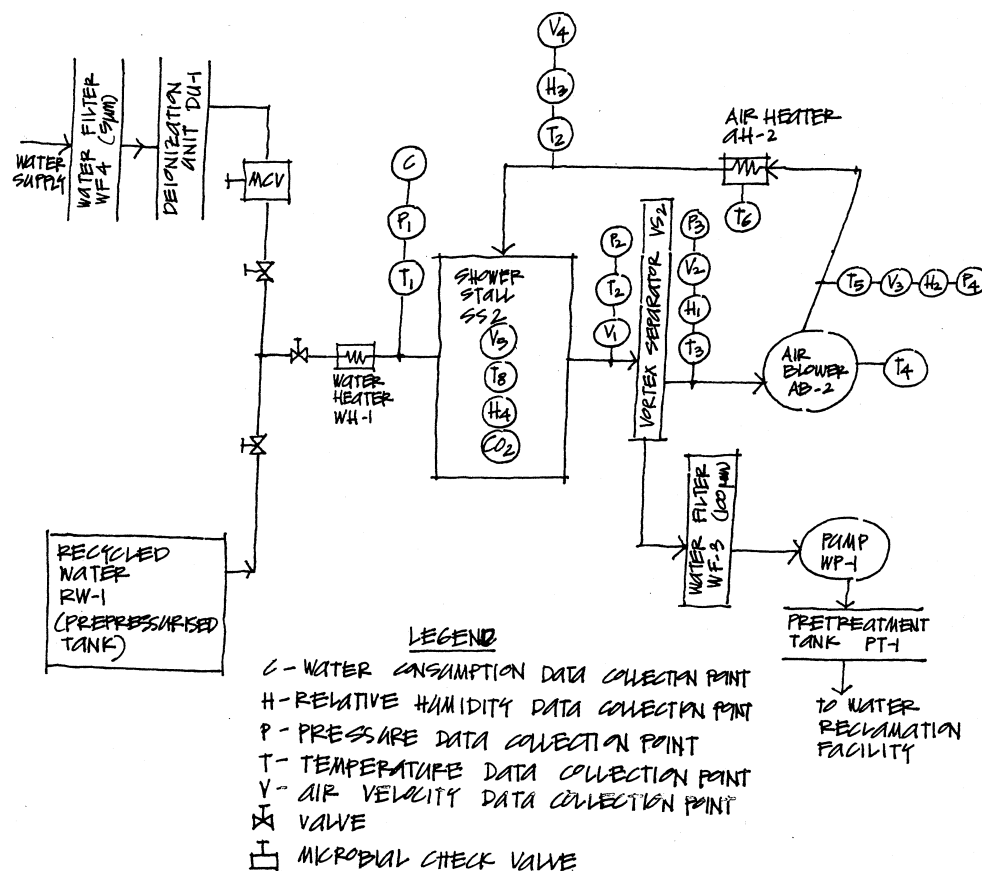 WATER SUPPLY
WATER FILTER
WF4 (5µm)
DEIONIZATION
UNIT DU-1
MCV
C
P1
T1
WATER
HEATER
WH-1
V4
H3
T2
AIR HEATER
AH-2
T6
SHOWER
STALL
SS2
V5
T8
H4
CO2
P2
T2
V1
VORTEX SEPARATOR VS2
P3
V2
H1
T3
T5
V3
H2
P4
AIR
BLOWER
AB-2
T4
WATER FILTER
WF-3 (100µm)
PUMP
WP-1
PRETREATMENT
TANK PT-1
to WATER
RECLAMATION
FACILITY
RECYCLED
WATER
RW-1
(PREPRESSURISED
TANK)
LEGEND
C - WATER CONSUMPTION DATA COLLECTION POINT
H - RELATIVE HUMIDITY DATA COLLECTION POINT
P - PRESSURE DATA COLLECTION POINT
T - TEMPERATURE DATA COLLECTION POINT
V - AIR VELOCITY DATA COLLECTION POINT
VALVE
MICROBIAL CHECK VALVE